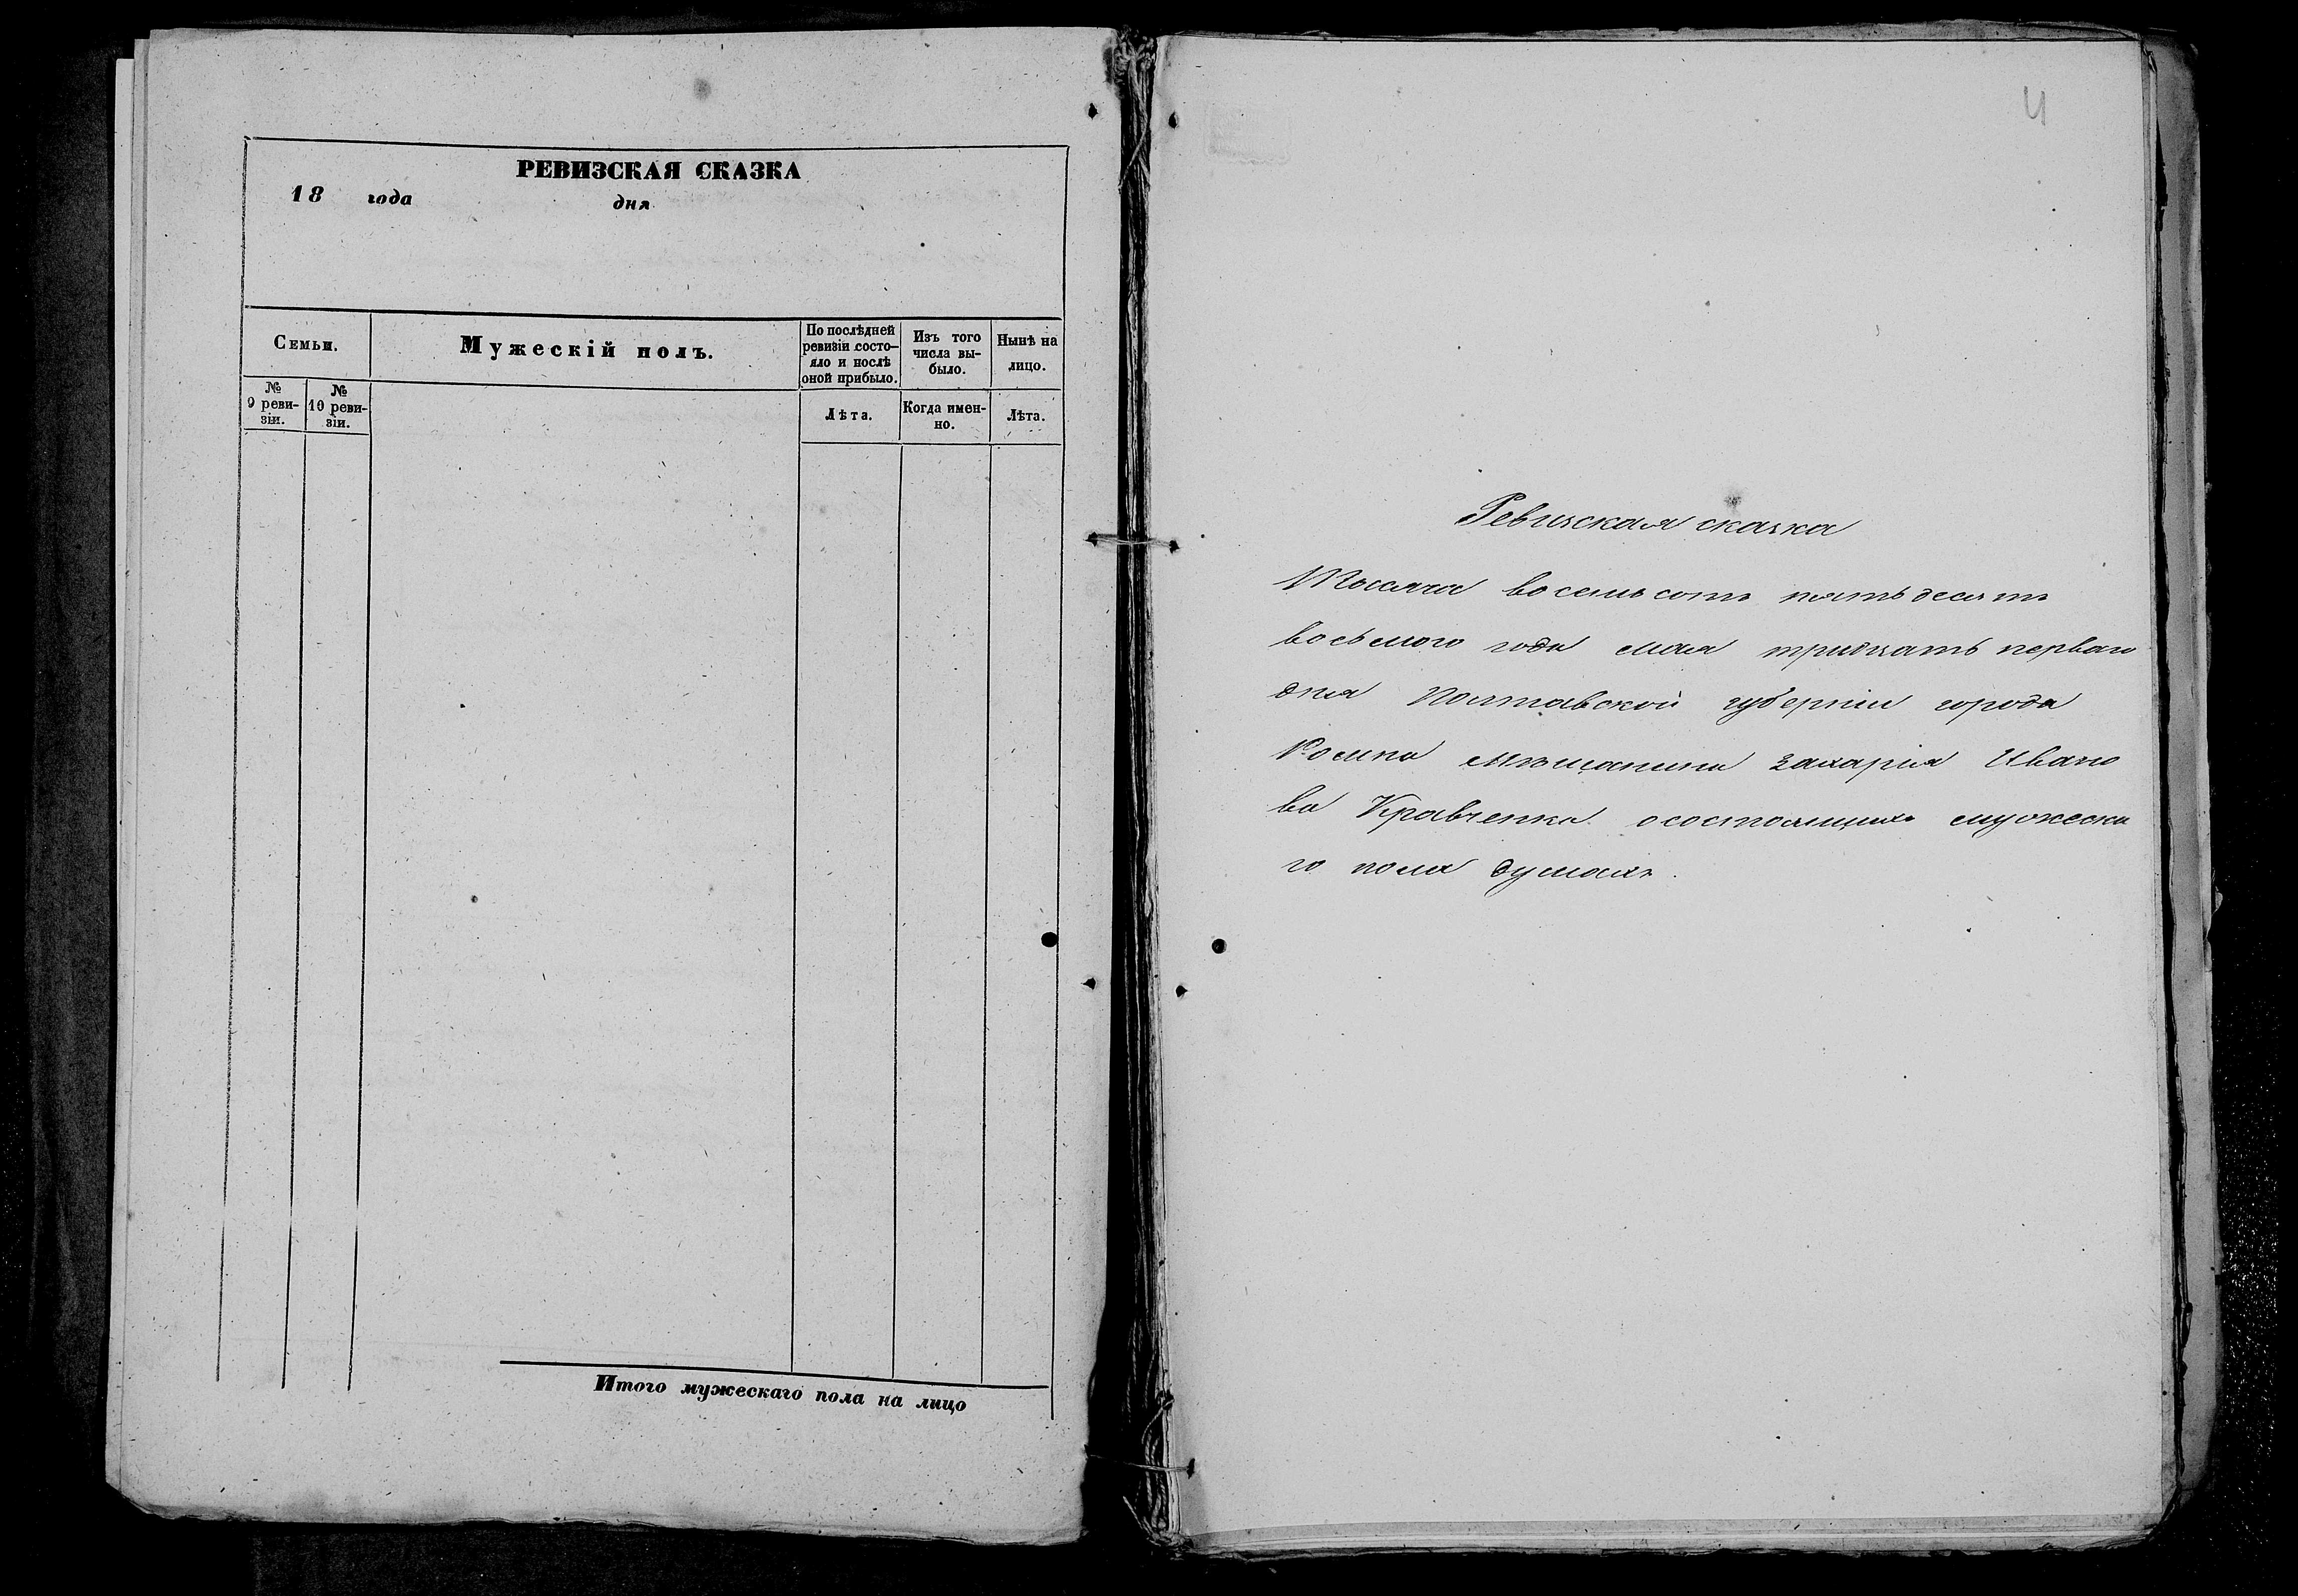 РЕВИЗСКАЯ СКАЗКА
18 года дня
Семьи.
Мужескій полъ.
По послѣдней
ревизіи состо-
яло и послѣ
оной прибыло.
Изъ того
числа вы-
было.
Нынѣ на
лицо.
№
9 реви-
зіи.
№
10 реви-
зіи.
Лѣта.
Когда имен-
но.
Лѣта.
Итого мужескаго пола на лицо
4
Ревизская сказка
Тысяча восемьсотъ пятьдесятъ
восьмого года мая тридцать перваго
дня Полтавской губерніи города
Ромна мѣщанина Захарія Ивано
ва Кравченка о состоящихъ мужеска
го пола душахъ.